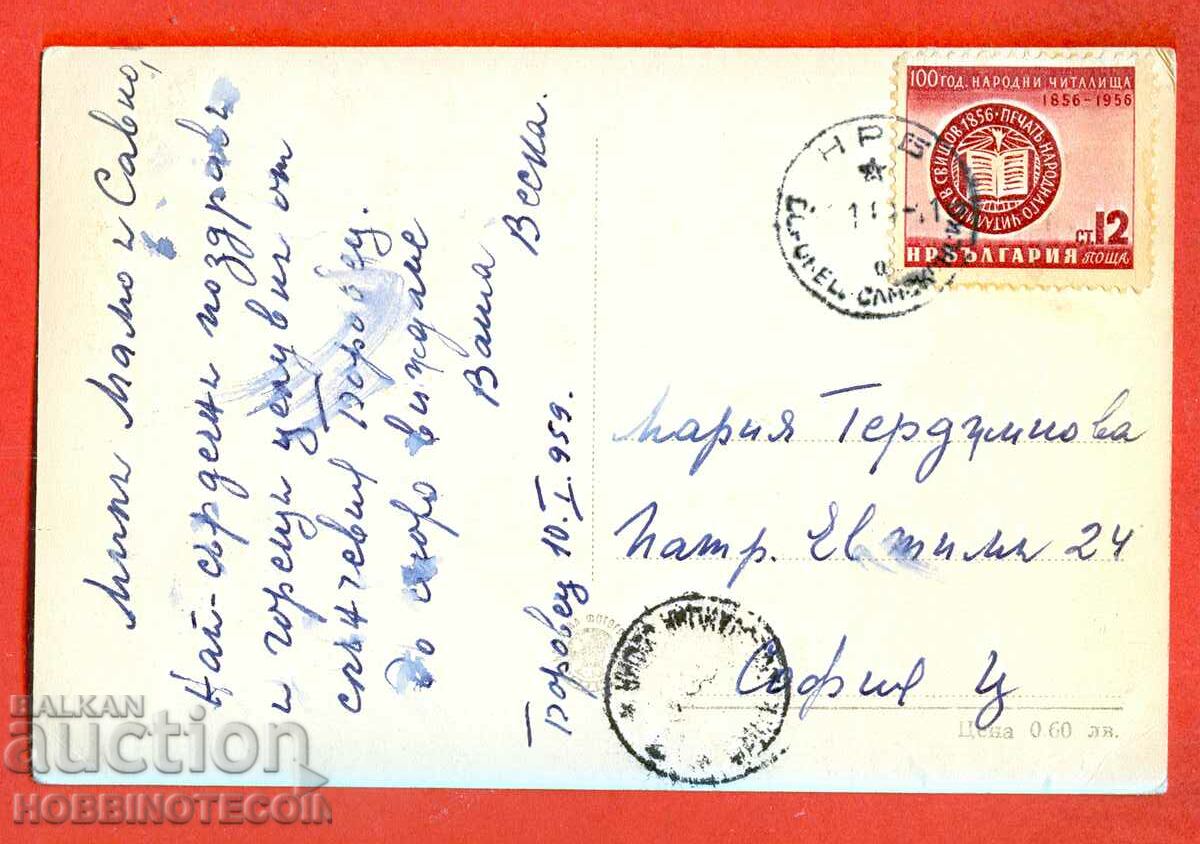 Мили Мамо и Савно,
Най-сърдечни поздрави
и горещи целувки от
слънчевия Боровец.
До скоро виждане
Ваша Веска.
Боровец 10.I.959.
100 ГОД. НАРОДНИ ЧИТАЛИЩА
1856-1956
СВИЩОВ 1856 ПЕЧАТЬ НАРОДНАГО ЧИТАЛИЩА В
СТ. 12
НР БЪЛГАРИЯ ПОЩА
НРБ
Мария Гердджикова
Патр. Евтимий 24
София Ц
Цена 0.60 лв.
BALKAN
auction
HOBBINOTECOIN